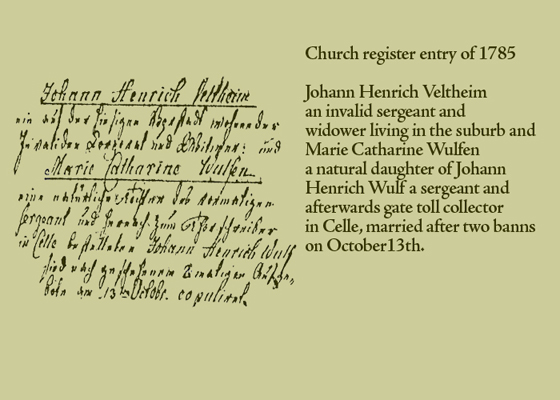 Johann Henrich Veltheim
ein auf der hiesigen Vorstadt wohnender
Invaliden Sergeant und Wittwer; und
Marie Catharine Wulfen
eine natürliche Tochter des vormaligen
Sergeant und hernach zum Thorschreiber
in Celle bestellten Johann Henrich Wulf
sind nach geschehenem 2maligen Aufge-
bote am 13 Octobr. copuliret.
Church register entry of 1785
Johann Henrich Veltheim
an invalid sergeant and
widower living in the suburb and
Marie Catharine Wulfen
a natural daughter of Johann
Henrich Wulf a sergeant and
afterwards gate toll collector
in Celle, married after two banns
on October13th.